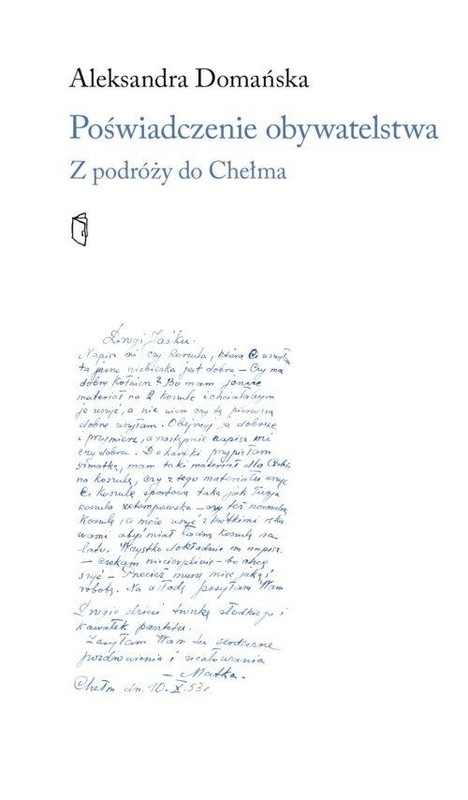 Aleksandra Domańska
Poświadczenie obywatelstwa
Z podróży do Chełma
Drogi Jaśku.
Napisz mi czy koszula, którą Ci uszyłam
ta jasno niebieska jest dobra – Czy ma
dobry kołnierz? Bo mam jeszcze
materiał na 2 koszule i chciałabym
je uszyć, a nie wiem czy tę pierwszą
dobrze uszyłam. Obejrzyj ją dobrze
i przymierz, a następnie napisz mi
czy dobra. Do kartki przypięłam
szmatkę, mam taki materiał dla Ciebie
na koszulę, czy z tego materiału uszyć
Ci koszulę sportową taką jak Twoja
koszula – czy też normalną
koszulę a może uszyć z krótkimi ręka
wami abyś miał ładną koszulę na
lato. Wszystko dokładnie mi napisz.
– czekam niecierpliwie – bo chcę
szyć – Przecież muszę mieć jakąś
robotę. Na osłodę posyłam Wam
Drogie dzieci troszkę słodkiego i
kawałek pasztetu.
Zasyłam Wam tu serdeczne
pozdrowienia i ucałowania
– Matka.
Chełm dn. 10.X.53r.